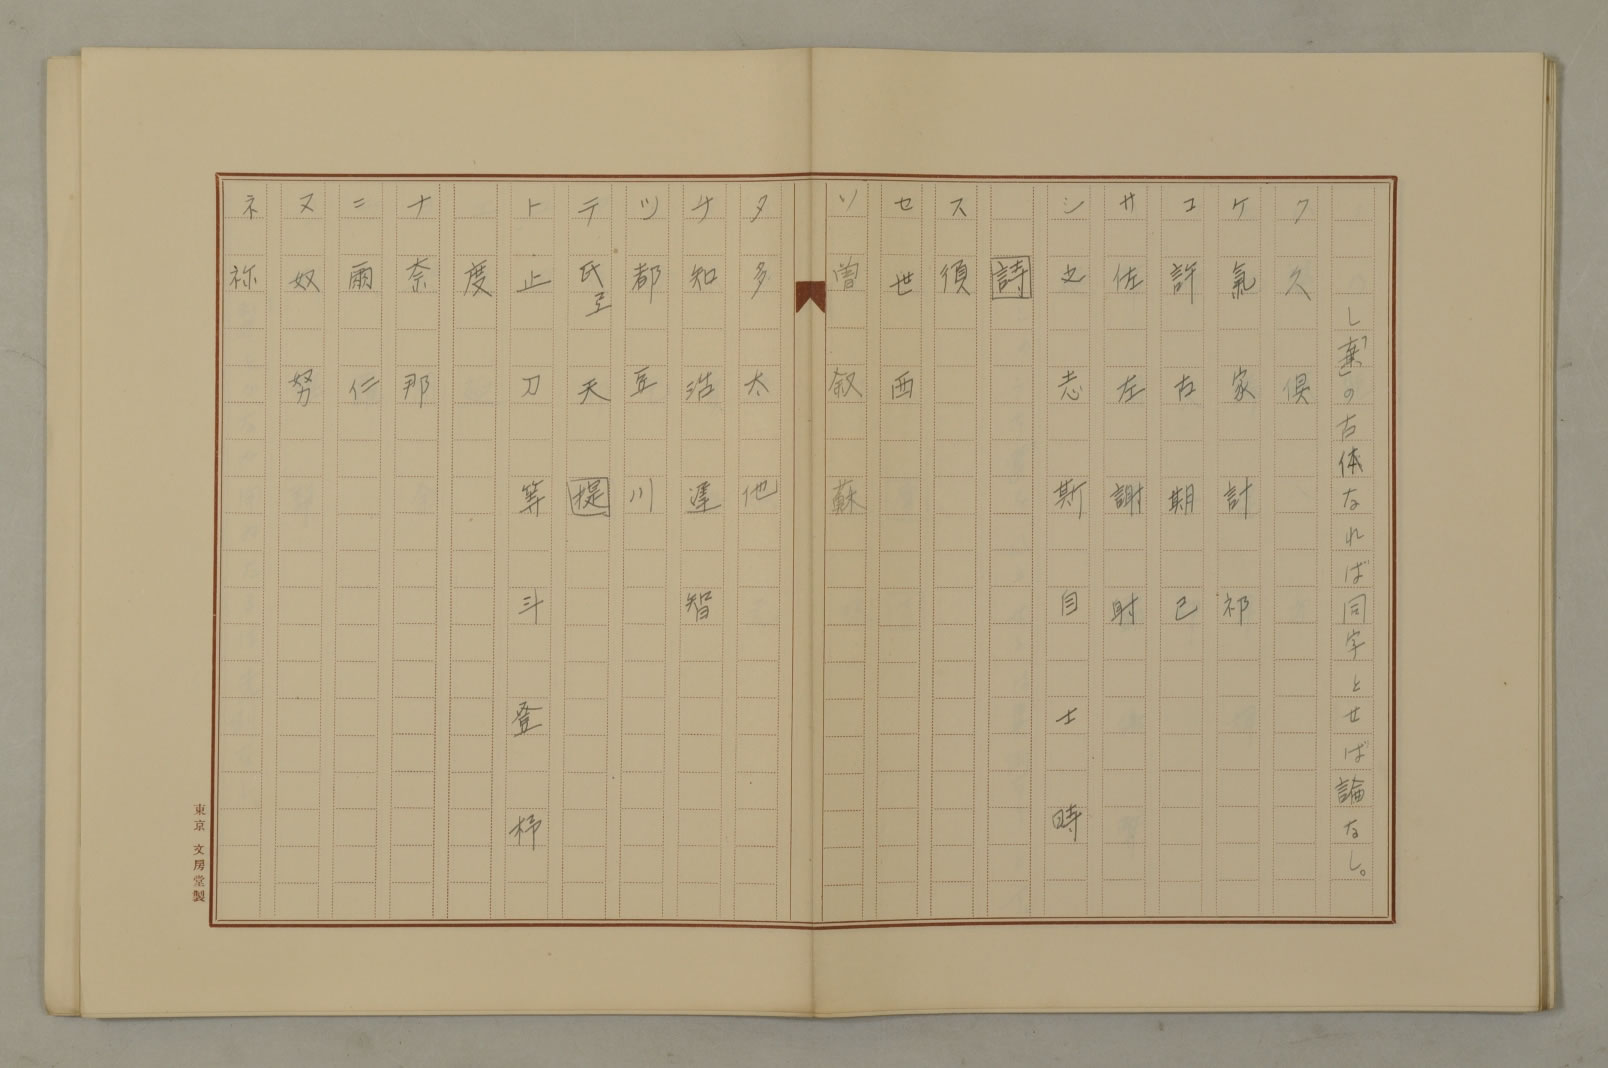 し「棄」の古体なれば同字とせば論なし。
ク 久 倶
ケ 氣 家 計 祁
コ 許 古 期 己
サ 佐 左 謝 射
シ 之 志 斯 自 士 時
詩
ス 須
セ 世 西
ソ 曽 叙 蘇
タ 多 太 他
チ 知 遅 智
ツ 都 豆 川
テ 氐 天 提
ト 止 刀 等 斗 登 杼
度
ナ 奈 那
ニ 爾 仁
ヌ 奴 努
ネ 祢
東京 文房堂製